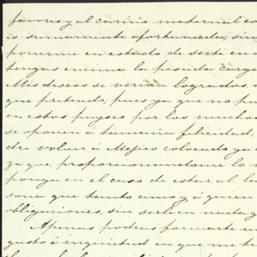 favores y al cariño maternal co
is sumamente afortunada, sin
ponerme en estado de serte en a
tengas encima la pesada carga
Mis deseos se verian logrados,
que pretendo, pues ya que no pu
en estos payses por las muchas
se oponen á tamaña felicidad,
dre volver á Mejico colocado ya
za que, proporcionandome lo n
ponga en el caso de estar al la
sona que tanto amo y á quien
obligaciones, sin serle en nada g
Apenas podras formarte un
gusto é inquietud en que me ha